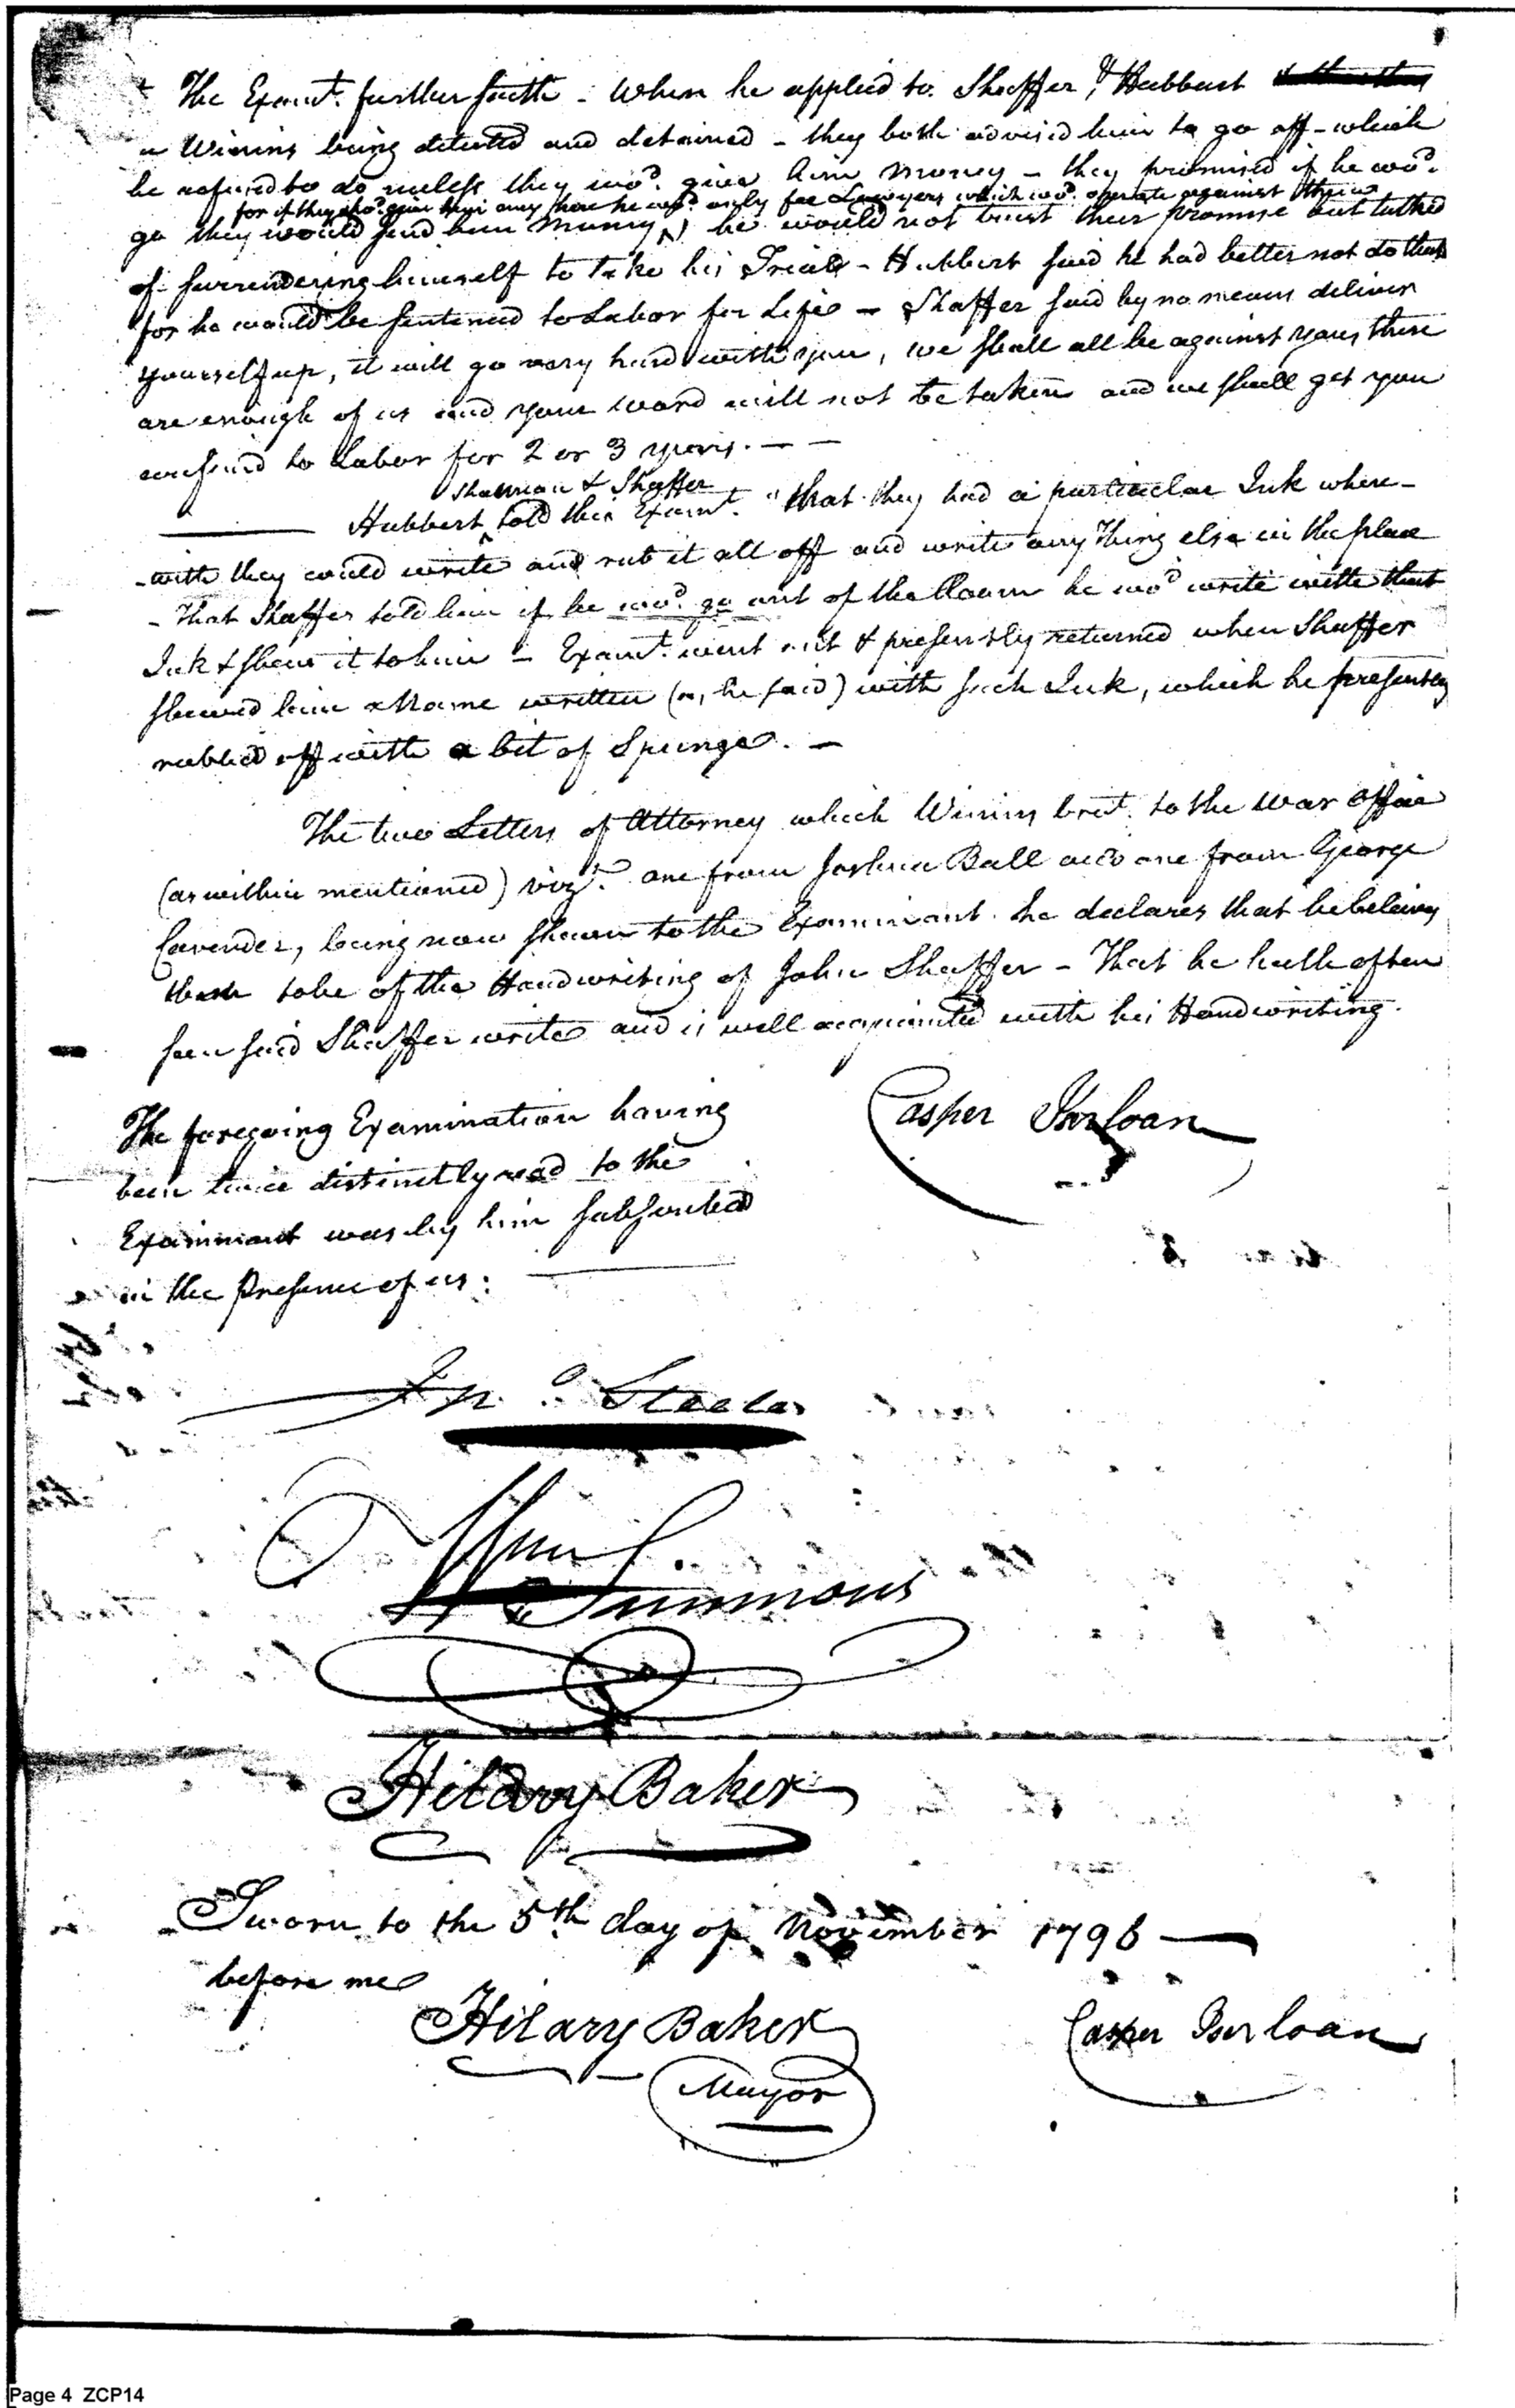 The Examt. further saith - When he applied to Shaffer & Hubbert
Winins being detected and detained - they both advised him to go off - which
he refused to do unless they wod. give him Money - they promised if he wod.
for if they shod. give him any here he wod. only fee Lawyers which wod. operate against them
go they would send him Money, he would not trust their promise but talked
of surrendering himself to take his Trial - Hubbert said he had better not do that
for he would be sentenced to Labor for Life - Shaffer said by no means deliver
yourself up, it will go very hard with you, we shall all be against you, there
are enough of us and your word will not be taken and we shall get you
confined to Labor for 2 or 3 years. - -
& Shaffer
Hubbert told this Examt. "that they had a particular Ink where-
-with they could write and rub it all off and write any Thing else in the place
- That Shaffer told him if he wod. go out of the Room he wod write with that
Ink & shew it to him - Examt. went out & presently returned when Shaffer
shewed him a Name written (as he said) with such Ink, which he presently
rubbed off with a bit of Spunge. -
The two Letters of Attorney which Winins brot. to the War Office
(as within mentioned) vizt. one from Joshua Ball and one from George
Cavender, being now shewn to the Examinant he declares that he believes
them to be of the Handwriting of John Shaffer - That he hath often
seen said Shaffer write and is well acquainted with his Handwriting.
Casper Iserloan
The foregoing Examination having
been twice distinctly read to the
Examinant was by him subscribed
in the Presence of us:
Jno. Steele
Wm Simmons
Hilary Baker
Sworn to the 5th day of November 1798
before me
Hilary Baker
Mayor
Casper Iserloan
Page 4 ZCP14